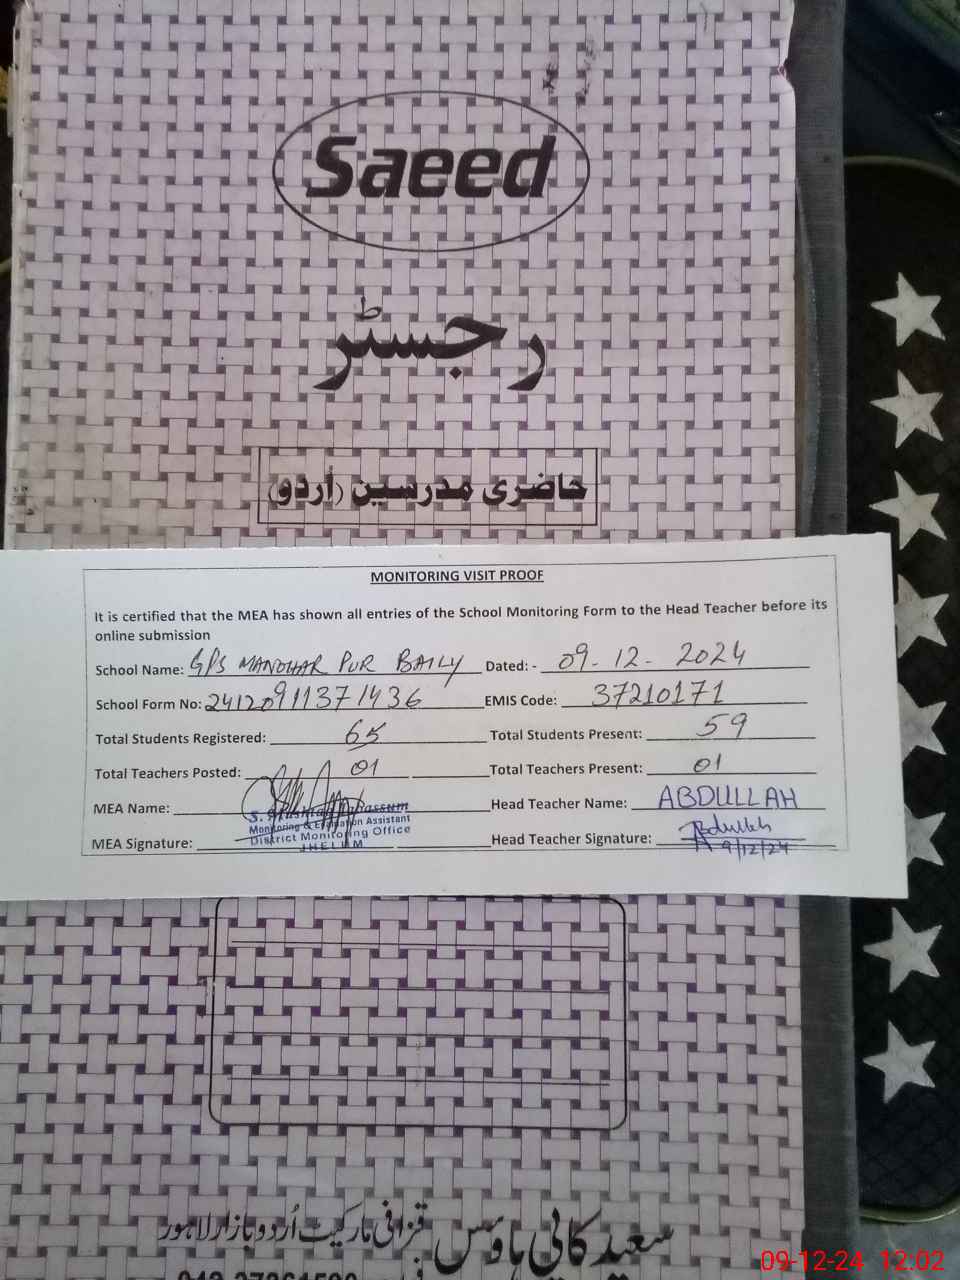 Saeed
رجسٹر
حاضری مدرسین (اُردو)
MONITORING VISIT PROOF
It is certified that the MEA has shown all entries of the School Monitoring Form to the Head Teacher before its
online submission
School Name: GPS MANOHAR PUR BAILY Dated: - 09-12-2024
School Form No: 24120911371436 EMIS Code: 37210171
Total Students Registered: 65 Total Students Present: 59
Total Teachers Posted: 01 Total Teachers Present: 01
MEA Name: Head Teacher Name: ABDULLAH
Monitoring & Evaluation Assistant
District Monitoring Office
JHELUM
MEA Signature: Head Teacher Signature: Abdullah
9/12/24
سعید کاپی ہاؤس قذافی مارکیٹ اُردو بازار لاہور
09-12-24 12:02